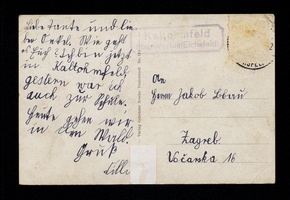 Liebe Tante und lie-
ber Onkel. Wie geht
es Euch? Ich bin jetzt
in Kaltohmfeld
gestern war ich
auch zur Schule.
Heute gehen wir
in den Wald.
Gruß
Lilli
Kaltohmfeld
An
Herrn Jakob Blau
Zagreb.
16